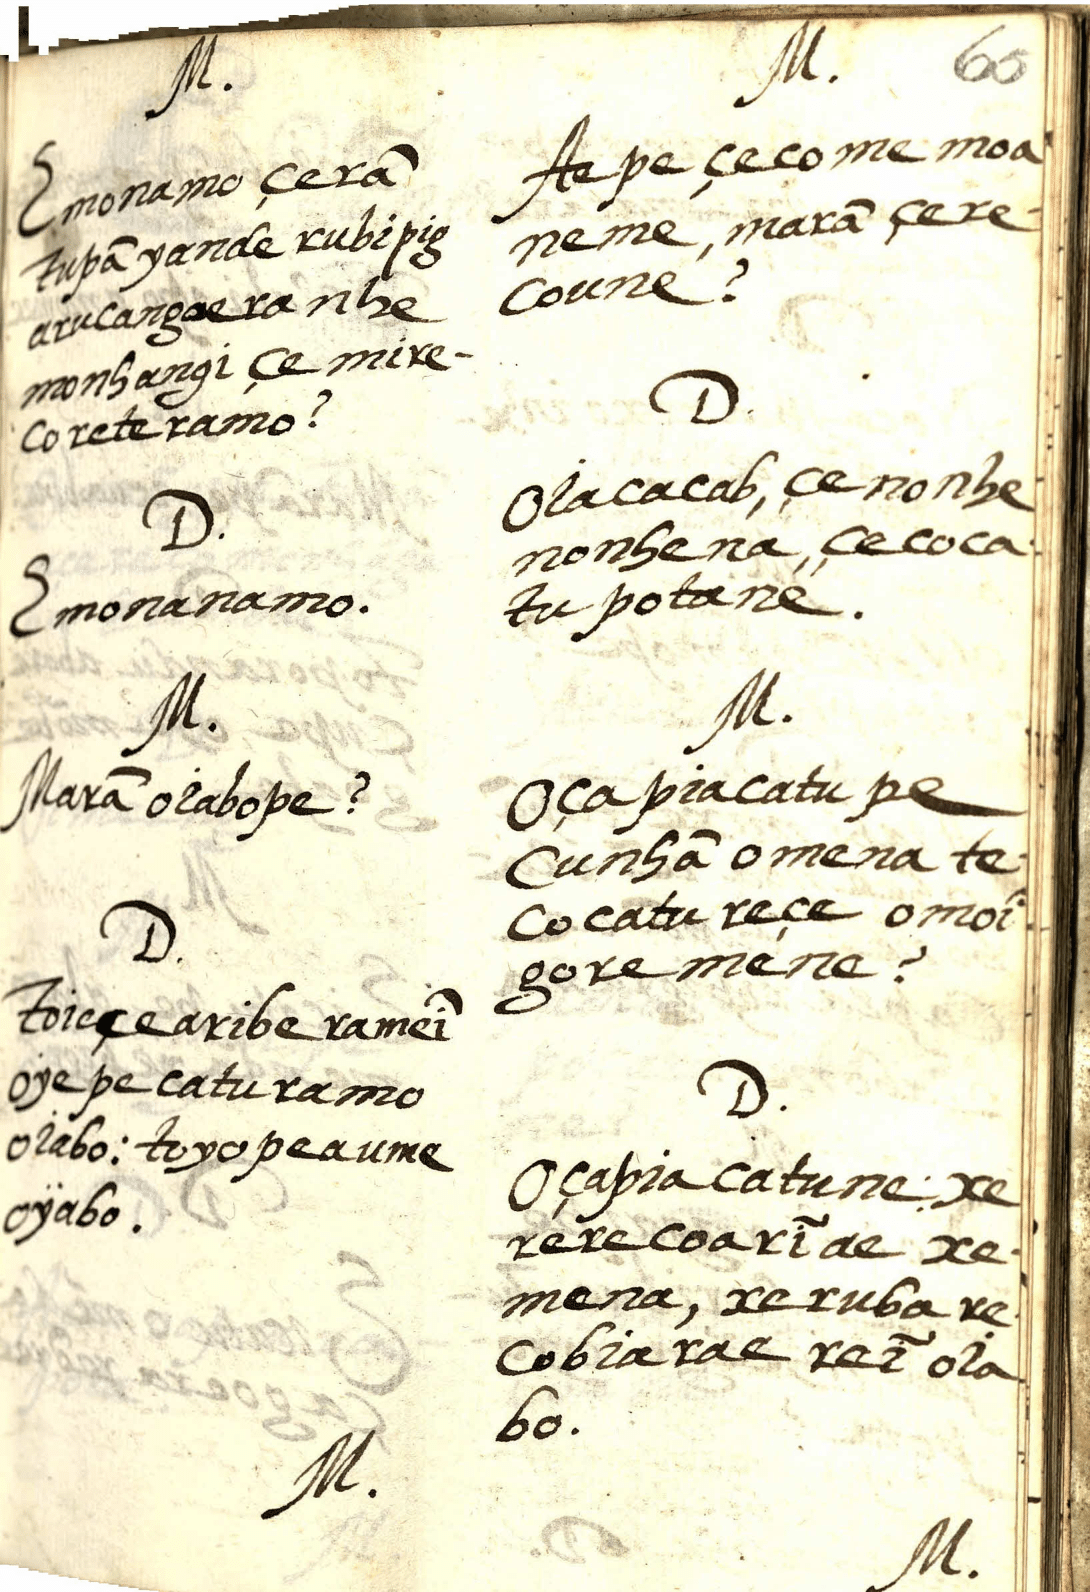 M.
Emonamo çerã
tupã yande rubipig
arucangoera nhe
monhangi çe mire-
coreteramo?
D.
Emonanamo.
M.
Marã oiabope?
D.
toicoçearibe rameĩ
oyepe caturamo
oiabo: toyopeaume
oÿabo.
M.
M.
60
Ae pe çecome moa
neme, marã çere-
coune?
D.
Oiacacab, çenonhe
nonhena, çecoca
tu potane.
M.
Oçapiacatu pe
Cunhã omena te-
cocatu reçe omoĩ
gore mene?
D.
Oçapia catune: xe
rerecoarĩ ae xe-
mena, xeruba re
cobiarae reĩ oia
bo.
M.